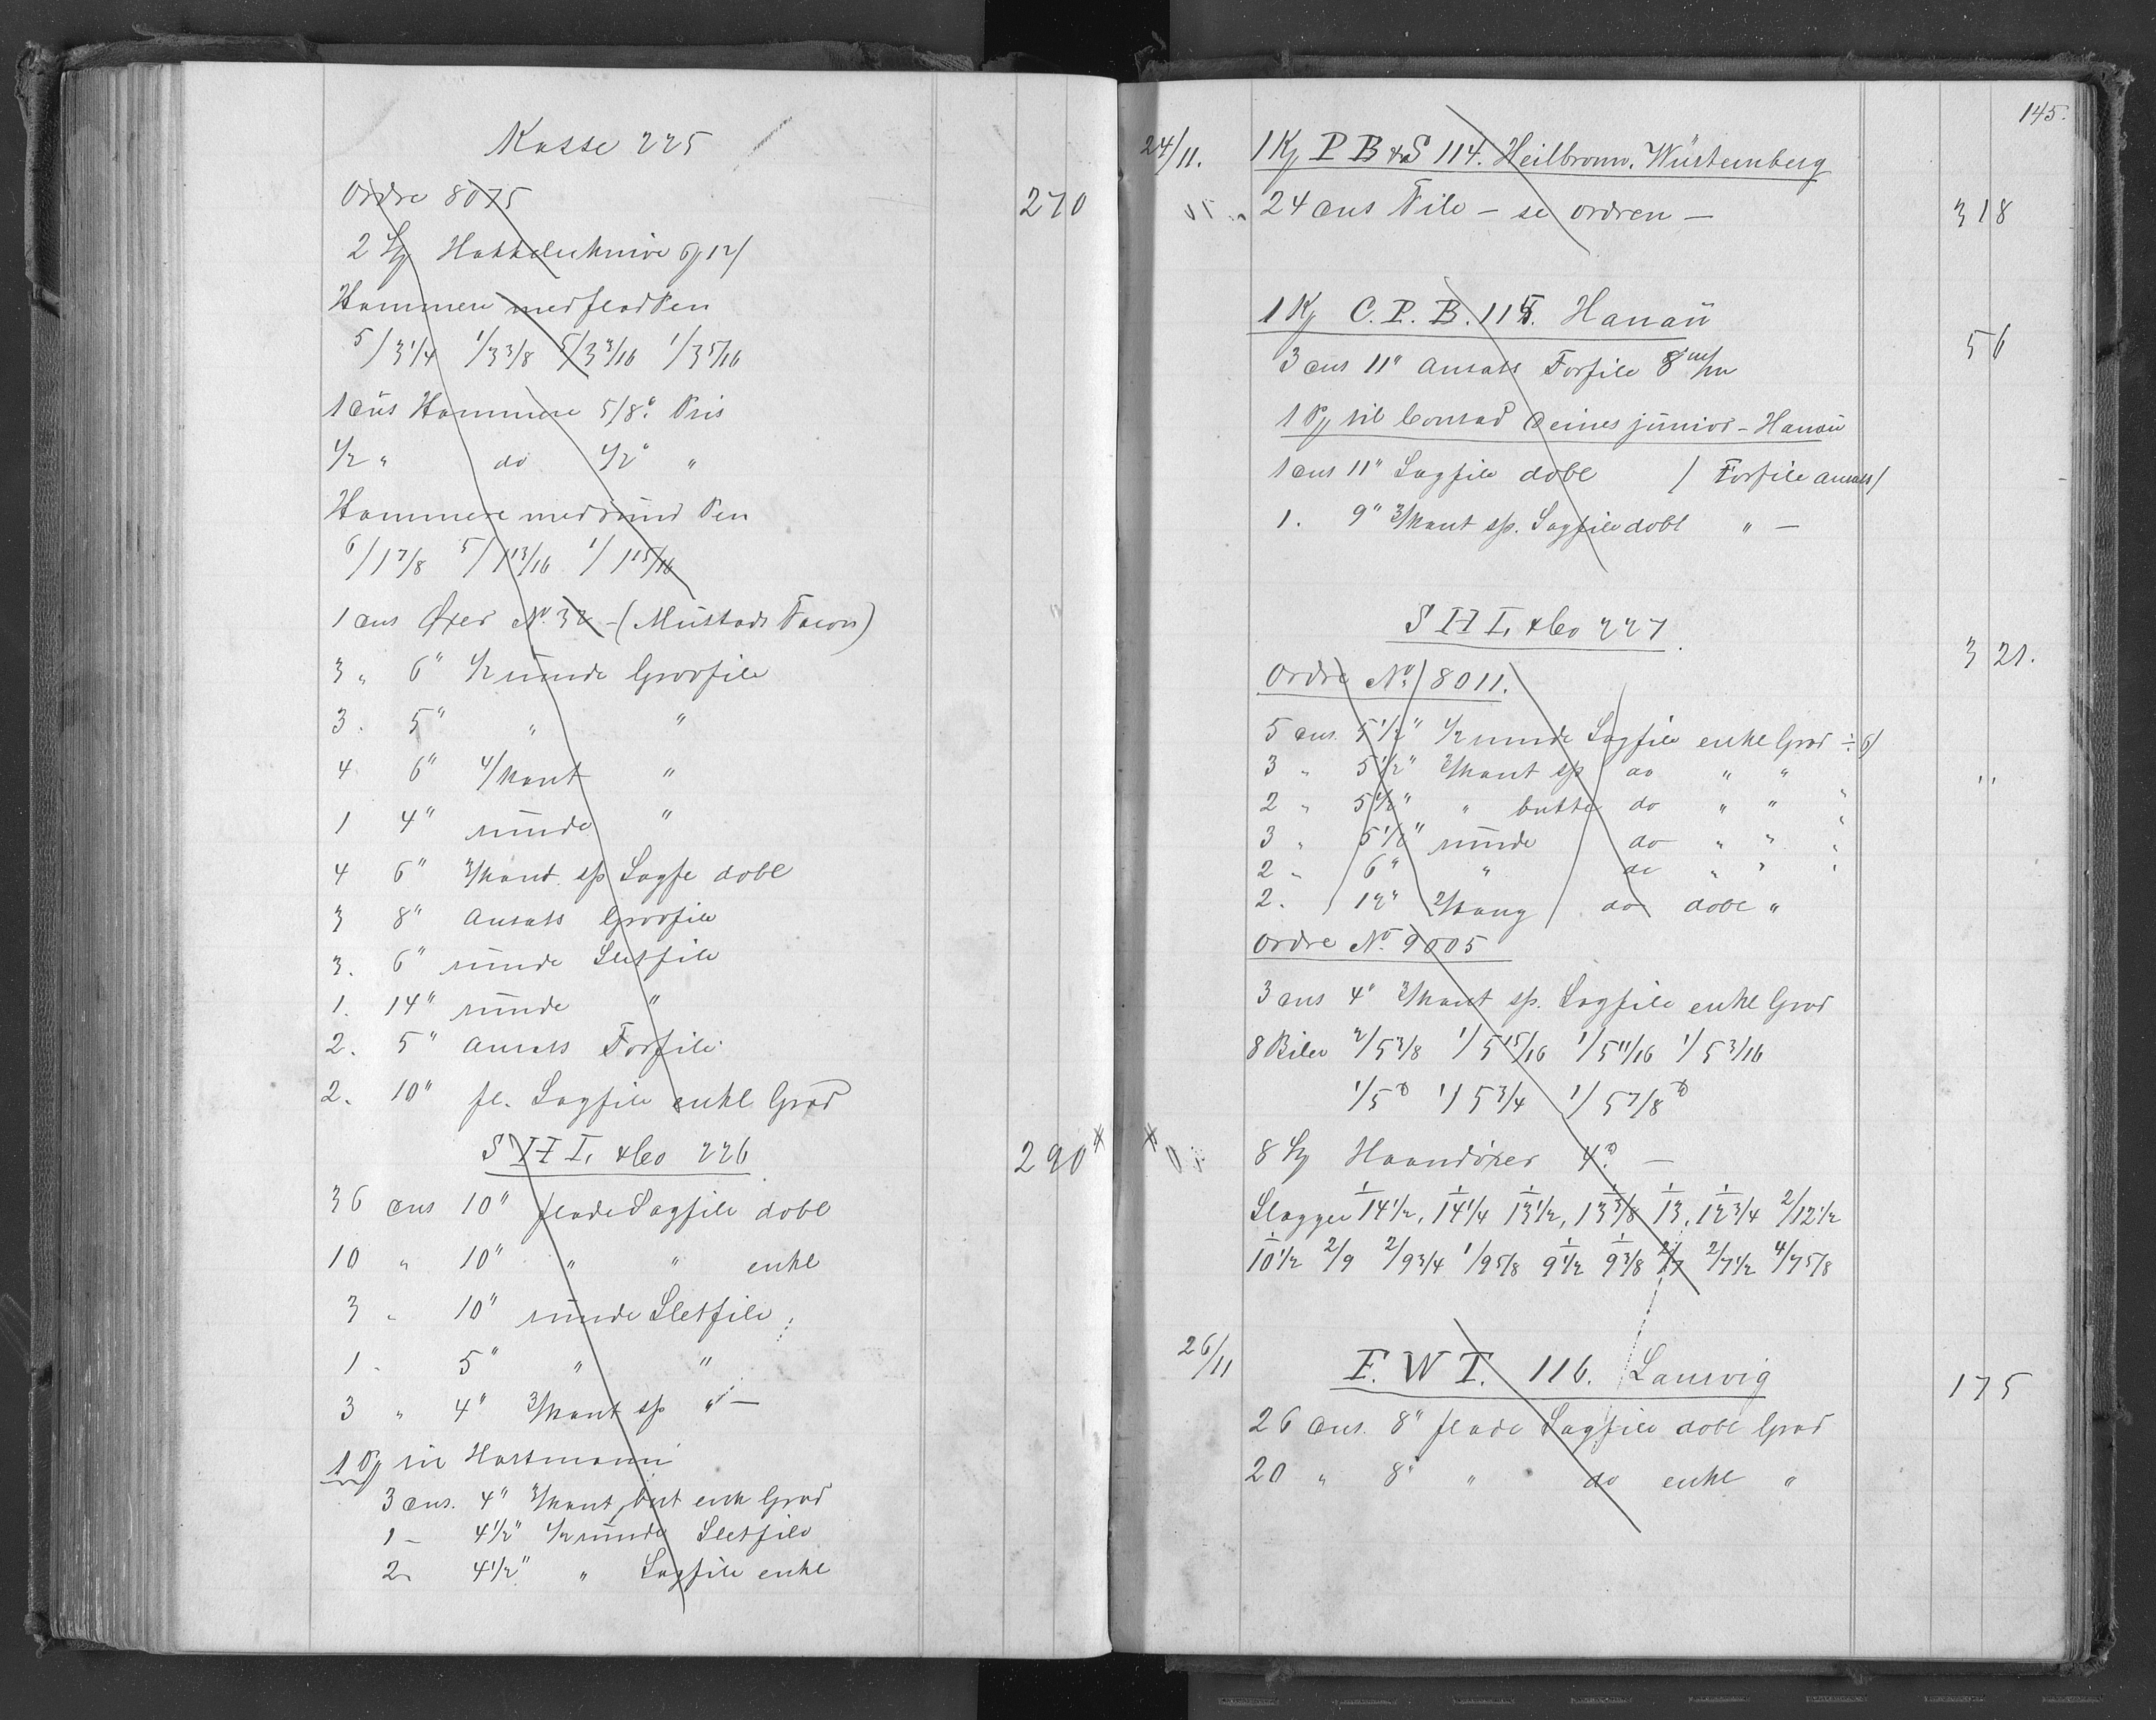 Kasse 225
Ordre 8075 270
2 Kg Hakkeleknive 6/12/
Hammere med flad Pen
5/3 1/4 1/3 3/8 5/3 3/16 1/3 5/16
1 dus Hammere 5/8" Pris
1/2 " do 1/2" "
Hammere med rund Pen
6/1 7/8 5/1 13/16 1/1 15/16
1 dus Øxer No. 32 - (Mustads Facon)
3 " 6" 1/2 runde Grovfile
3. 5" " "
4 6" 4/kant "
1 4" runde "
4 6" 3/kant sp Sagfe dobl
3 8" Ansats Grovfile
3. 6" runde Sletfile
1. 14" runde "
2. 5" Ansats Forfile
2. 10" fl. Sagfile enkl Grad
S H L & Co 226 290 *
36 dus 10" flade Sagfile dobl
10 " 10" " " enkl
3 " 10" runde Sletfile
1 - 5" " "
3 " 4" 3/kant sp " -
1 Pg til Hartmann
3 dus. 4" 3/kant, but enk Grad
1 - 4 1/2" 1/2 runde Sletfile
2. 4 1/2" " Sagfile enkl
145.
24/11. 1 Kg P B & S 114. Heilbronn. Würtemberg
24 dus File - se ordren - 318
1 Kg C. P. B. 115. Hanau
3 dus 11" Ansats Forfile 8 m/m 56
1 Pg til Conrad Deines junior - Hanau
1 dus 11" Sagfile dobl / Forfile ansats/
1. 9" 3/kant sp. Sagfile dobl " -
S H L & Co 227.
Ordre No. 8011. 321.
5 dus. 5 1/2" 1/2 runde Sagfile enkl Grad ÷ 6/
3 " 5 1/2" 3/kant sp do " "
2 " 5 1/2" " butte do " " "
3 " 5 1/2" runde do " " "
2 " 6" " do " " "
2. 12" do dobl "
Ordre No. 9005
3 dus 4" 3/kant sp. Sagfile enkl Grad
8 Biler 2/5 3/8 1/5 15/16 1/5 11/16 1/5 3/16
1/5 1/5 3/4 1/5 7/8
* 8 Kg Haandøxer 4 -
Slagger 1/14 1/2, 1/14 1/4 1/13 1/2, 1/13 3/8 1/13, 1/12 3/4 2/12 1/2
1/10 1/2 2/9 2/9 3/4 1/9 5/8 1/9 1/2 1/9 3/8 2/7 2/7 1/2 4/7 5/8
26/11 F. W T. 116. Laurvig 175
26 dus. 8" flade Sagfile dobl Grad
20 " 8" " do enkl "